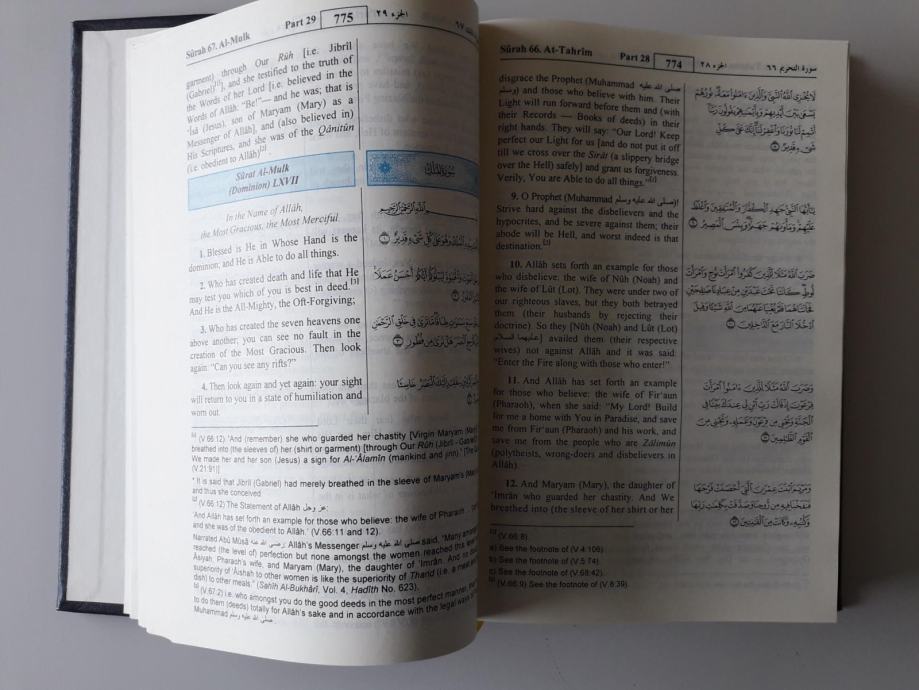 Sûrah 66. At-Tahrîm
Part 28
774
الجزء ٢٨
سورة التحريم ٦٦
disgrace the Prophet (Muhammad صلى الله عليه
وسلم) and those who believe with him. Their
Light will run forward before them and (with
their Records — Books of deeds) in their
right hands. They will say: "Our Lord! Keep
perfect our Light for us [and do not put it off
till we cross over the Sirât (a slippery bridge
over the Hell) safely] and grant us forgiveness.
Verily, You are Able to do all things."
لا يخزي الله النبي والذين ءامنوا معه نورهم
يسعى بين أيديهم وبأيمنهم يقولون ربنا
أتمم لنا نورنا واغفر لنا إنك على كل
شىء قدير
9. O Prophet (Muhammad صلى الله عليه وسلم)!
Strive hard against the disbelievers and the
hypocrites, and be severe against them; their
abode will be Hell, and worst indeed is that
destination.[2]
يأيها النبي جهد الكفار والمنفقين واغلظ
عليهم ومأوىهم جهنم وبئس المصير
10. Allâh sets forth an example for those
who disbelieve: the wife of Nûh (Noah) and
the wife of Lût (Lot). They were under two of
our righteous slaves, but they both betrayed
them (their husbands by rejecting their
doctrine). So they [Nûh (Noah) and Lût (Lot)
عليهما السلام] availed them (their respective
wives) not against Allâh and it was said:
"Enter the Fire along with those who enter!"
ضرب الله مثلا للذين كفروا امرأت نوح وامرأت
لوط كانتا تحت عبدين من عبادنا صلحين
فخانتاهما فلم يغنيا عنهما من الله شيئا وقيل
ادخلا النار مع الداخلين
11. And Allâh has set forth an example
for those who believe: the wife of Fir'aun
(Pharaoh), when she said: "My Lord! Build
for me a home with You in Paradise, and save
me from Fir'aun (Pharaoh) and his work, and
save me from the people who are Zâlimûn
(polytheists, wrong-doers and disbelievers in
Allâh).
وضرب الله مثلا للذين ءامنوا امرأت
فرعون إذ قالت رب ابن لي عندك بيتا في
الجنة ونجني من فرعون وعمله ونجني من
القوم الظلمين
12. And Maryam (Mary), the daughter of
'Imrân who guarded her chastity. And We
breathed into (the sleeve of her shirt or her
ومريم ابنت عمرن التي أحصنت فرجها
فنفخنا فيه من روحنا وصدقت بكلمت ربها
وكتبه وكانت من القنتين
(V.66:8).
a) See the footnote of (V.4:106).
b) See the footnote of (V.5:74).
c) See the footnote of (V.68:42).
(V.66:9) See the footnote of (V.8:39).
Sûrah 67. Al-Mulk
Part 29
775
الجزء ٢٩
garment) through Our Rûh [i.e. Jibrîl
(Gabriel)[1]], and she testified to the truth of
the Words of her Lord [i.e. believed in the
Words of Allâh: "Be!"— and he was; that is
'Îsâ (Jesus), son of Maryam (Mary) as a
Messenger of Allâh], and (also believed in)
His Scriptures, and she was of the Qânitûn
(i.e. obedient to Allâh)[2]
Sûrat Al-Mulk
(Dominion) LXVII
سورة الملك
In the Name of Allâh,
the Most Gracious, the Most Merciful
1. Blessed is He in Whose Hand is the
dominion; and He is Able to do all things.
2. Who has created death and life that He
may test you which of you is best in deed.[3]
And He is the All-Mighty, the Oft-Forgiving;
3. Who has created the seven heavens one
above another; you can see no fault in the
creation of the Most Gracious. Then look
again: "Can you see any rifts?"
4. Then look again and yet again: your sight
will return to you in a state of humiliation and
worn out.
[1] (V.66:12) 'And (remember) she who guarded her chastity [Virgin Maryam
breathed into (the sleeves of) her (shirt or garment) [through Our Rûh (Jibrîl - Gabriel
We made her and her son (Jesus) a sign for Al-'Âlamîn (mankind and jinn).'
(V.21:91)]
* It is said that Jibrîl (Gabriel) had merely breathed in the sleeve of Maryam's
and thus she conceived.
[2] (V.66:12) The Statement of Allâh عز وجل:
'And Allâh has set forth an example for those who believe: the wife of Pharaoh
and she was of the obedient to Allâh.' (V.66:11 and 12).
Narrated Abû Mûsâ رضي الله عنه: Allâh's Messenger صلى الله عليه وسلم said, "Many amongst
reached (the level of) perfection but none amongst the women reached this
Âsiyah, Pharaoh's wife, and Maryam (Mary), the daughter of 'Imrân. And
superiority of 'Âishah to other women is like the superiority of Tharîd (i.e. a meat
dish) to other meals." (Sahîh Al-Bukhârî, Vol. 4, Hadîth No. 623).
[3] (V.67:2) i.e. who amongst you do the good deeds in the most perfect manner,
to do them (deeds) totally for Allâh's sake and in accordance with the legal ways
Muhammad صلى الله عليه وسلم.